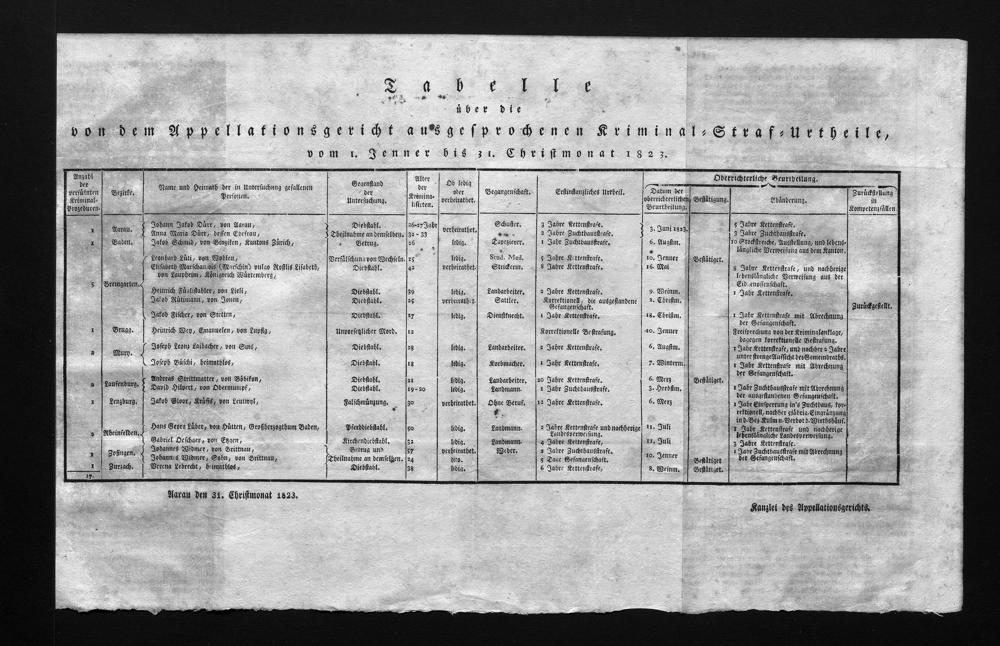 Tabelle
über die
von dem Appellationsgericht ausgesprochenen Kriminal-Straf-Urtheile,
vom 1. Jenner bis 31. Christmonat 1823.
Anzahl der verführten Kriminal-Prozeduren.
Bezirke.
Name und Heimath der in Untersuchung gefallenen Personen.
Gegenstand der Untersuchung.
Alter der Kriminalisirten.
Ob ledig oder verheirathet.
Begangenschaft.
Erstinstanzliches Urtheil.
Oberrichterliche Beurtheilung.
Datum der oberrichterlichen Beurtheilung.
Bestätigung.
Abänderung.
Zurückstellung in Kompetenzfällen
1 Aarau. Johann Jakob Dürr, von Aarau, Diebstahl. 26-27 Jahr verheirathet. Schuster. 3 Jahre Kettenstrafe. 3. Juni 1823. 5 Jahre Kettenstrafe.
Anna Maria Dürr, dessen Ehefrau, Theilnahme an demselben. 32-33 2 Jahre Zuchthausstrafe. 3 Jahre Zuchthausstrafe.
1 Baden. Jakob Schmid, von Kantons Zürich, Betrug. 26 ledig. Tapezierer. 1 Jahr Zuchthausstrafe. 6. Augstm. 10 Stockstreiche, Ausstellung, und lebenslängliche Verweisung aus dem Kanton.
5 Bremgarten. Leonhard Lüti, von Wohlen, Verfälschung von Wechseln. 25 ledig. Stud. Med. 5 Jahre Kettenstrafe. 10. Jenner Bestätiget.
Elisabeth Marschan (Marschin) vulgo Roslis Lisabeth, von Laupheim, Königreich Würtemberg, Diebstahl. 42 verheirathet. Strickerin. 8 Jahre Kettenstrafe. 16. Mai 8 Jahre Kettenstrafe, und nachherige lebenslängliche Verweisung aus der Eidgenossenschaft.
Heinrich Füglistahler, von Lieli, Diebstahl. 29 ledig. Landarbeiter. 2 Jahre Kettenstrafe. 9. Weinm. 1 Jahr Kettenstrafe.
Jakob Rütimann, von Jonen, Diebstahl. 25 verheirathet. Sattler. Korrektionell, die ausgestandene Gefangenschaft. 2. Christm. Zurückgestellt.
Jakob Fischer, von Stetten, Diebstahl. 27 ledig. Dienstknecht. 1 Jahr Kettenstrafe. 18. Christm. 1 Jahr Kettenstrafe mit Abrechnung der Gefangenschaft.
1 Brugg. Heinrich Wey, Emanuelen, von Lupfig, Unvorsetzlicher Mord. 12 Korrektionelle Bestrafung. 10. Jenner Freisprechung von der Kriminalanklage, dagegen korrektionelle Bestrafung.
2 Mury. Joseph Leonz Laibacher, von Sins, Diebstahl. 28 ledig. Landarbeiter. 2 Jahre Kettenstrafe. 6. Augstm. 1 Jahr Kettenstrafe und nachher 2 Jahre unter strenge Aufsicht des Gemeindraths.
Joseph Büschi, heimathlos, Diebstahl. 18 ledig. Korbmacher. 1 Jahr Kettenstrafe. 7. Winterm. 1 Jahr Kettenstrafe mit Abrechnung der Gefangenschaft.
2 Laufenburg. Andreas Strittmatter, von Göbikon, Diebstahl. 21 ledig. Landarbeiter. 10 Jahre Kettenstrafe. 6. Merz Bestätiget.
David Hilpert, von Obernumpf, Diebstahl. 19-20 ledig. Landmann. 1 Jahr Zuchthausstrafe. 3. Herbstm. 1 Jahr Zuchthausstrafe mit Abrechnung der ausgestandenen Gefangenschaft.
1 Lenzburg. Jakob Gloor, von Leutwyl, Falschmünzung. 30 verheirathet. Ohne Beruf. 12 Jahre Kettenstrafe. 6. Merz 1 Jahr Einsperrung in's Zuchthaus, korrektionell, nachher Eingränzung
2 Rheinfelden. Hans Georg Lüber, von Hütten, Großherzogthum Baden, Pferddiebstahl. 50 ledig. Landmann. 2 Jahre Kettenstrafe und nachherige Landesverweisung. 11. Juli 1 Jahr Kettenstrafe und nachherige lebenslängliche Landesverweisung.
Gabriel Oeschger, von Etzgen, Kirchendiebstahl. 32 ledig. Landmann. 4 Jahre Kettenstrafe. 11. Juli 3 Jahre Kettenstrafe.
1 Zofingen. Johannes Widmer, von Brittnau, Betrug und 57 verheirathet. Weber. 2 Jahre Zuchthausstrafe. 10. Jenner 1 Jahr Zuchthausstrafe mit Abrechnung der Gefangenschaft.
Johannes Widmer, Sohn, von Brittnau, Theilnahme an demselben. 24 dito. 5 Tage Gefangenschaft. Bestätiget
1 Zurzach. Verena Lebrecht, heimathlos, Diebstahl. 38 ledig. 6 Jahre Kettenstrafe. 8. Weinm. Bestätiget.
17.
Aarau den 31. Christmonat 1823.
Kanzlei des Appellationsgerichts.